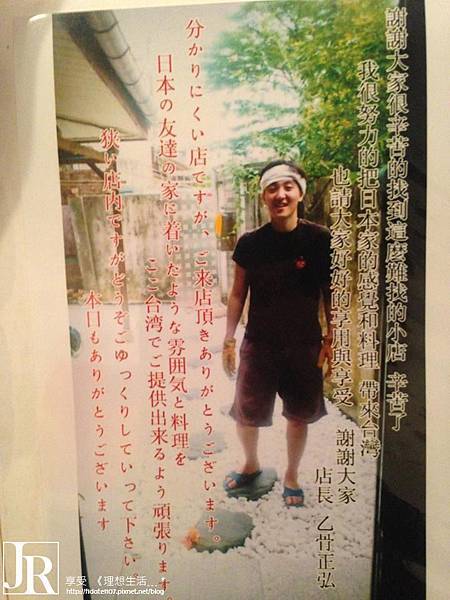 謝謝大家很辛苦的找到這麼難找的小店 辛苦了
我很努力的把日本家的感覺和料理 帶來台灣
也請大家好好的享用與享受 謝謝大家
店長 乙骨正弘
分かりにくい店ですが、ご来店頂きありがとうございます。
日本の友達の家に着いたような雰囲気と料理を
ここ台湾でご提供出来るよう頑張ります。
狭い店内ですがどうぞごゆっくりしていって下さい
本日もありがとうございます
JR 享受《理想生活...
http://hdoter107.pixnet.net/blog